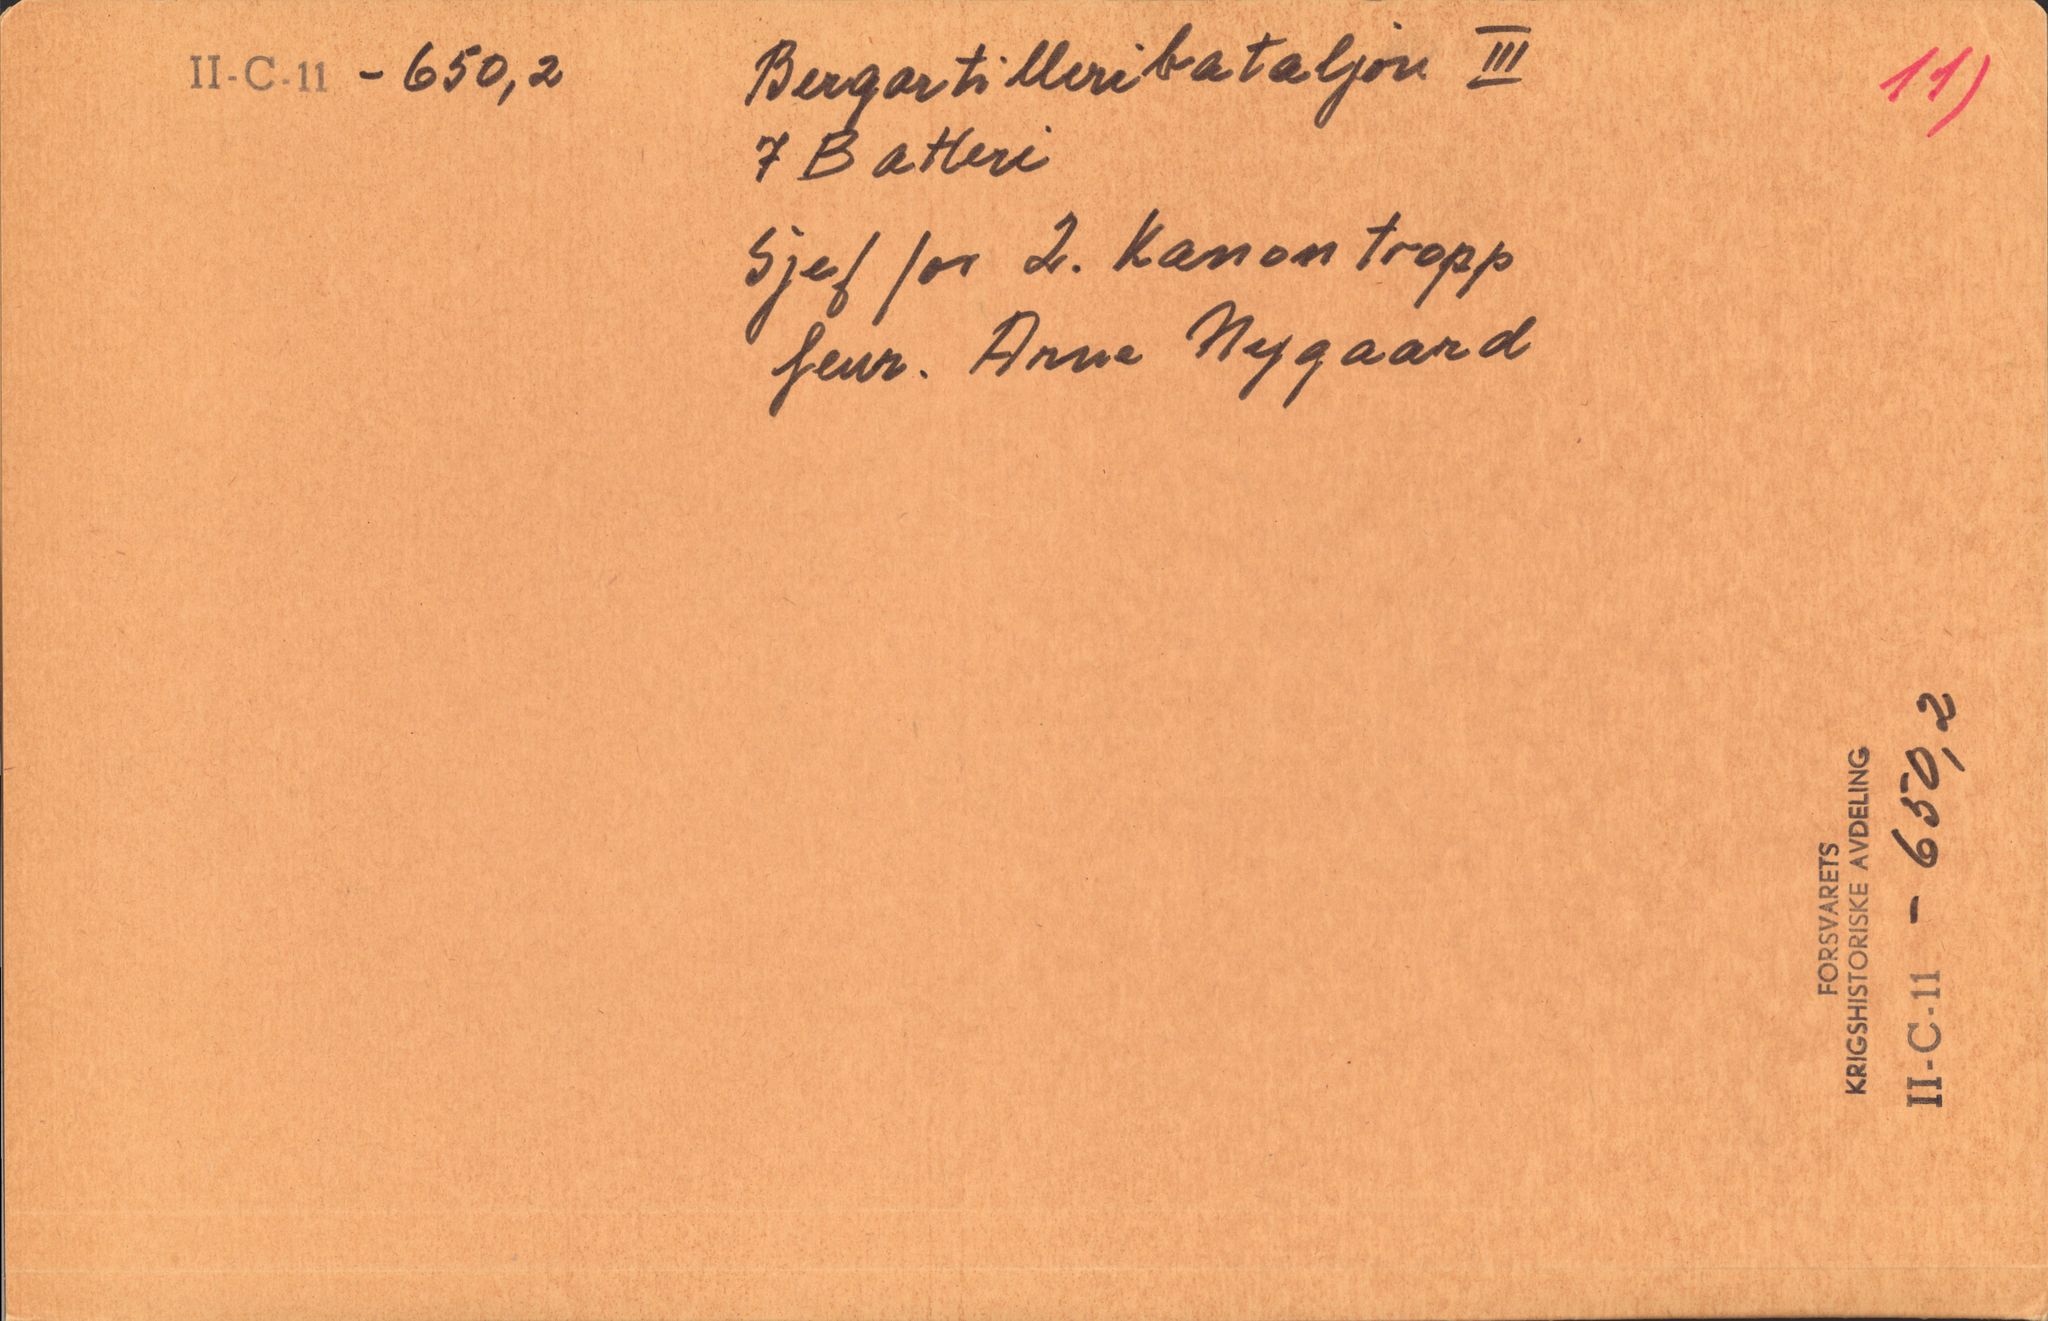 II-C-11 - 650,2
Bergartilleribataljon III
7 Batteri
Sjef for 2. Kanontropp
fenr. Arne Nygaard
11)
FORSVARETS
KRIGSHISTORISKE AVDELING
II-C-11 - 650,2